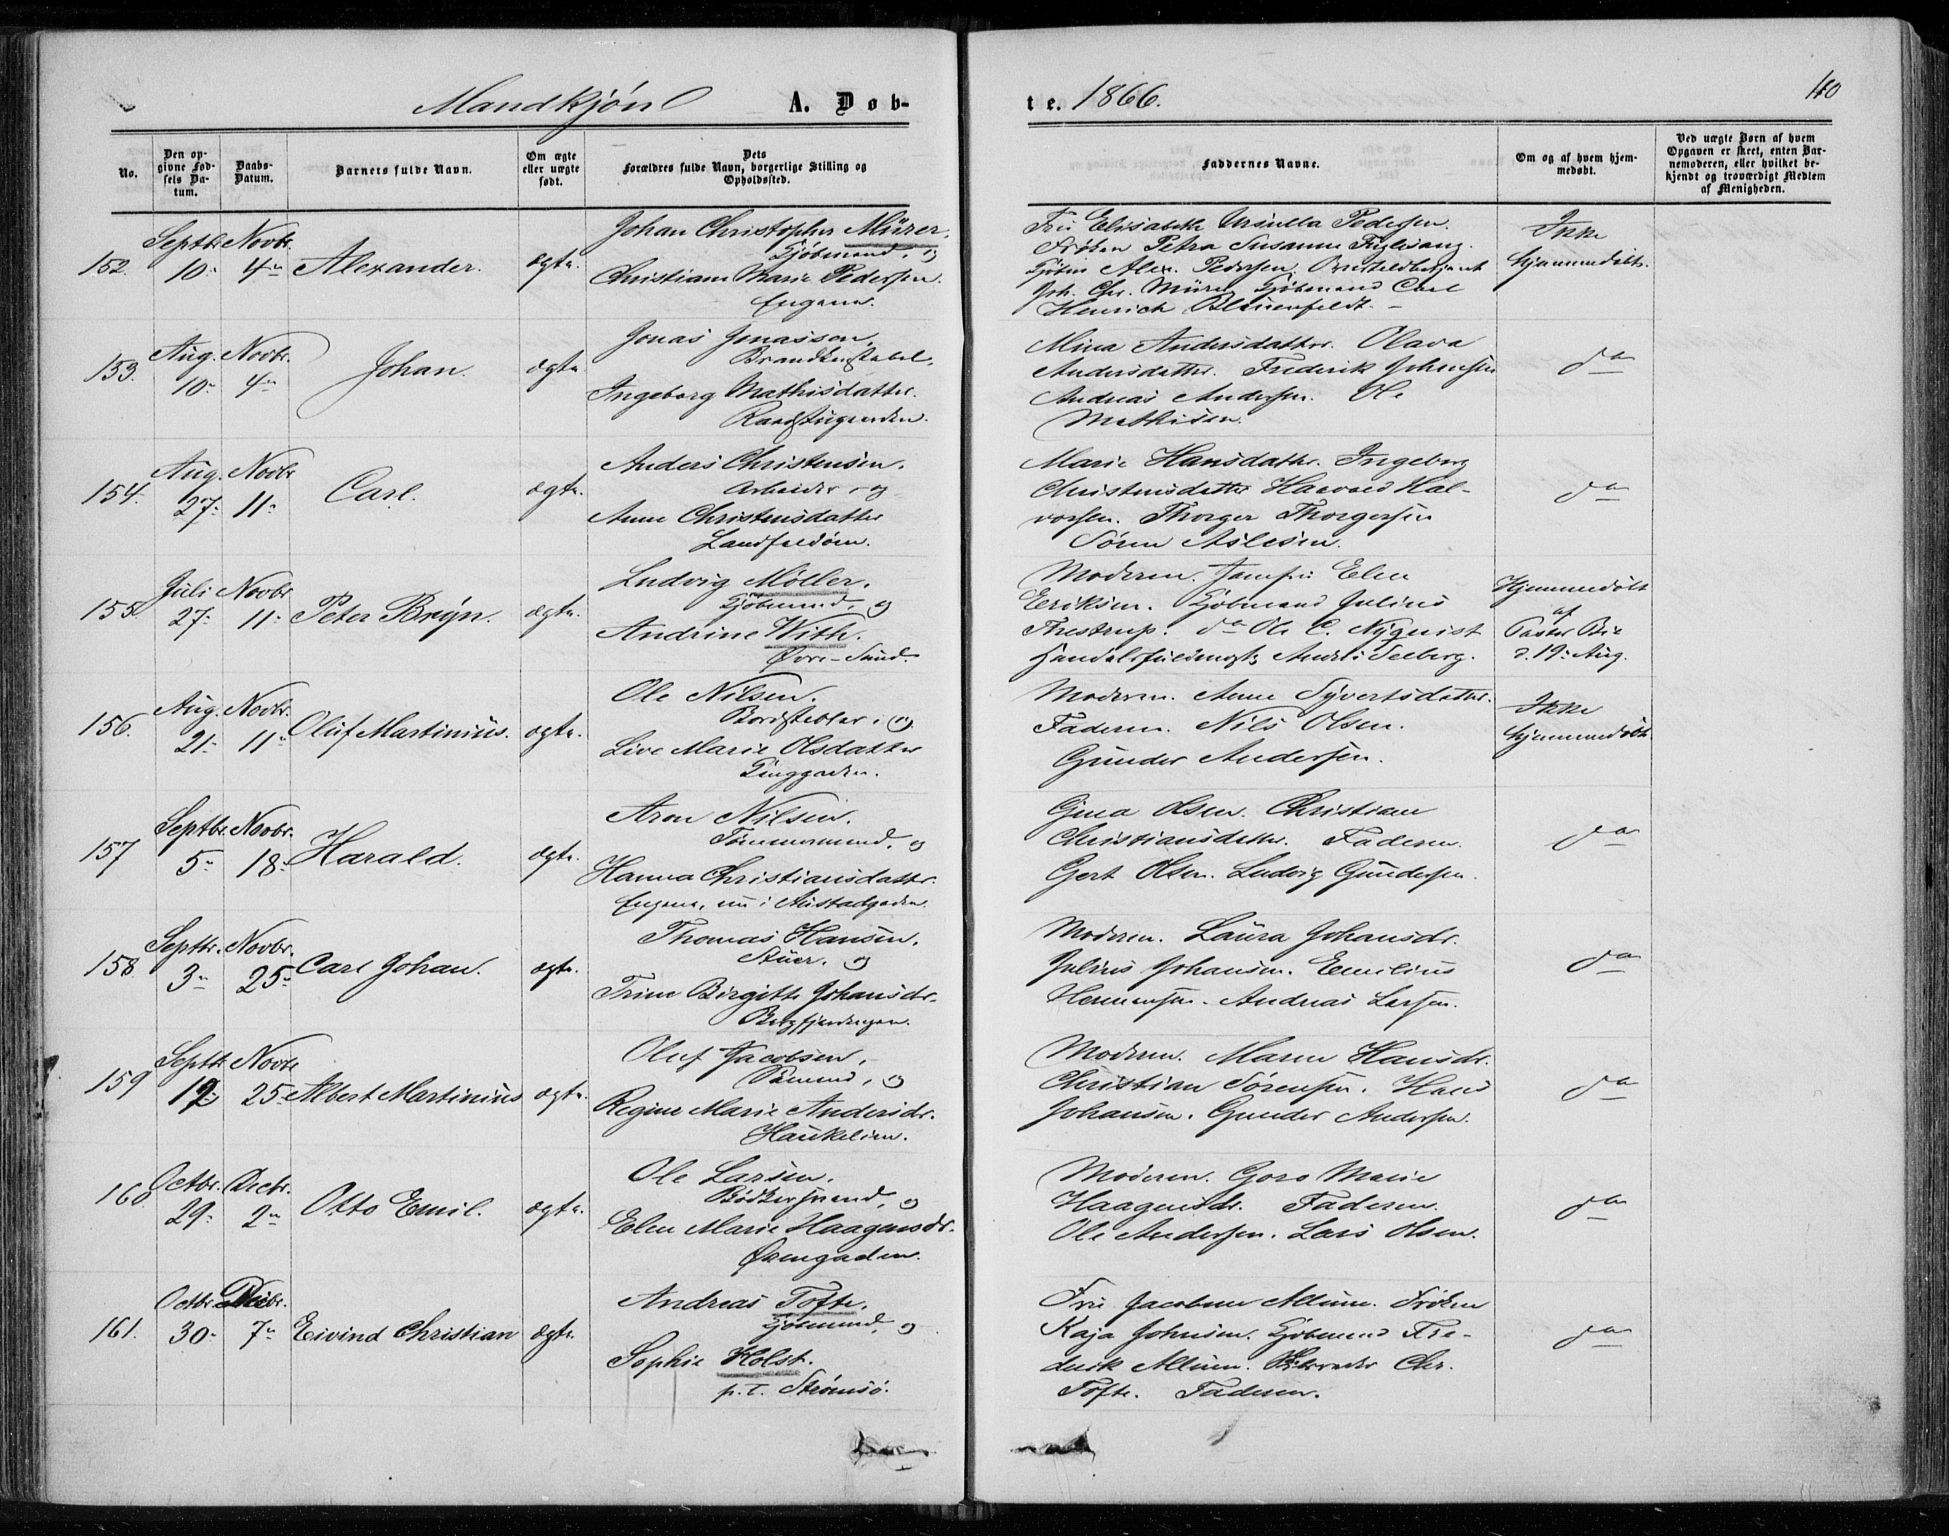 Mandkjøn A. Døb-
te. 1866. 110
No.
Den op-
givne Fød-
sels Da-
tum.
Daabs-
Datum.
Barnets fulde Navn.
Om ægte
eller uægte
født.
Dets
Forældres fulde Navn, borgerlige Stilling og
Opholdssted.
Faddernes Navne.
Om og af hvem hjem-
medøbt.
Ved uægte Børn af hvem
Opgaven er skeet, enten Bar-
nemoderen, eller hvilket be-
kjendt og troværdigt Medlem
af Menigheden.
152. Septbr. 10. Novbr. 4. Alexander. ægte.
Johan Christopher Mürer.
Kjøbmand, og
Christiane Marie Pedersen.
Engene.
Fru Elisabeth Ursulla Pedersen.
Frøken Petra Susanne Fuglesang.
Alex. Pedersen.
Joh. Chr. Mürer, Kjøbmand Carl
Henrich Blauenfeldt.
Ikke
hjemmedøbt.
153. Aug. 10. Novbr. 4. Johan. ægte
Jonas Jonassen,
Brandkonstabel,
Ingeborg Mathisdatter.
Mina Andersdatter. Olava
Andersdatter. Frederik Johansen
Andreas Andersen. Ole
Mathisen.
do
154. Aug. 27. Novbr. 11. Carl. ægte.
Anders Christensen.
Arbeider, og
Anne Christensdatter
Landfaldøen.
Marie Hansdatter. Ingeborg
Christensdatter Haavald Hal-
vorsen. Thorger Thorgersen
Søren Aslesen.
do
155. Juli 27. Novbr 11. Peter Bruyn. ægte.
Ludvig Møller.
Kjøbmand, og
Andrine With.
Øvre-Sund.
Moderen. Jomfru Elen
Eriksen. Kjøbmand Julius
Thestrup. do Ole C. Nyquist
Handelsfuldmægt. Andr. Seeberg.
Hjemmedøbt
af
Pastor Bie
d. 19. Aug.
156. Aug. 21. Novbr. 11. Oluf Martinius. ægte.
Ole Nilsen,
Bordstabler, og
Live Marie Olsdatter
Tinggaden.
Moderen. Anne Syvertsdatter.
Faderen. Nils Olsen.
Gunder Andersen.
Ikke
hjemmedøbt.
157 Septbr. 5. Novbr. 18. Harald. ægte.
Aron Nilsen.
Tømmermand, og
Hanna Christiansdatter.
Engene, nu i Austadgaden.
Gina Olsen. Christiane
Christiansdatter. Faderen.
Gert Olsen. Ludvig Gundersen.
do
158. Septbr. 3. Novbr. 25. Carl Johan. ægte.
Thomas Hansen.
Stuer. og
Trine Birgitte Johansdr.
Bergfjerdingen.
Moderen. Laura Johansdr.
Julius Johansen. Emilius
Hermansen. Andreas Larsen.
do
159 Septbr. 12. Novbr 25. Albert Martinius ægte.
Oluf Jacobsen,
Sømand, og
Regine Marie Andersdr.
Haukelien.
Moderen. Maren Hansdr.
Christian Sørensen. Hans
Johansen. Gunder Andersen.
do
160 Octbr. 29. Decbr. 2. Otto Emil. ægte.
Ole Larsen.
Bødkersvend, og
Elen Marie Haagensdr.
Øvengaden.
Moderen. Goro Marie
Haagensdr. Faderen.
Ole Andersen. Lars Olsen.
do
161. Octbr. 30. Decbr. 7. Eivind Christian ægte.
Andreas Tofte.
Kjøbmand, og
Sophie Holst.
p.t. Strømsø.
Fru Jacobine Allum. Frøken
Kaja Johnsen. Kjøbmand Fre-
derik Allum. Chr.
Tofte. Faderen.
do